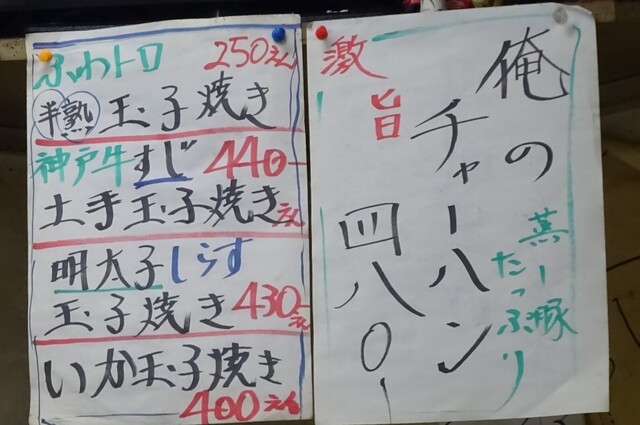 ふわトロ 250えん
半熟 玉子焼き
神戸牛すじ 440
土手玉子焼き えん
明太子しらす
玉子焼き 430えん
いか玉子焼き
400えん
激旨
俺の
チャーハン
蒸し豚
たっぷり
四八〇ー